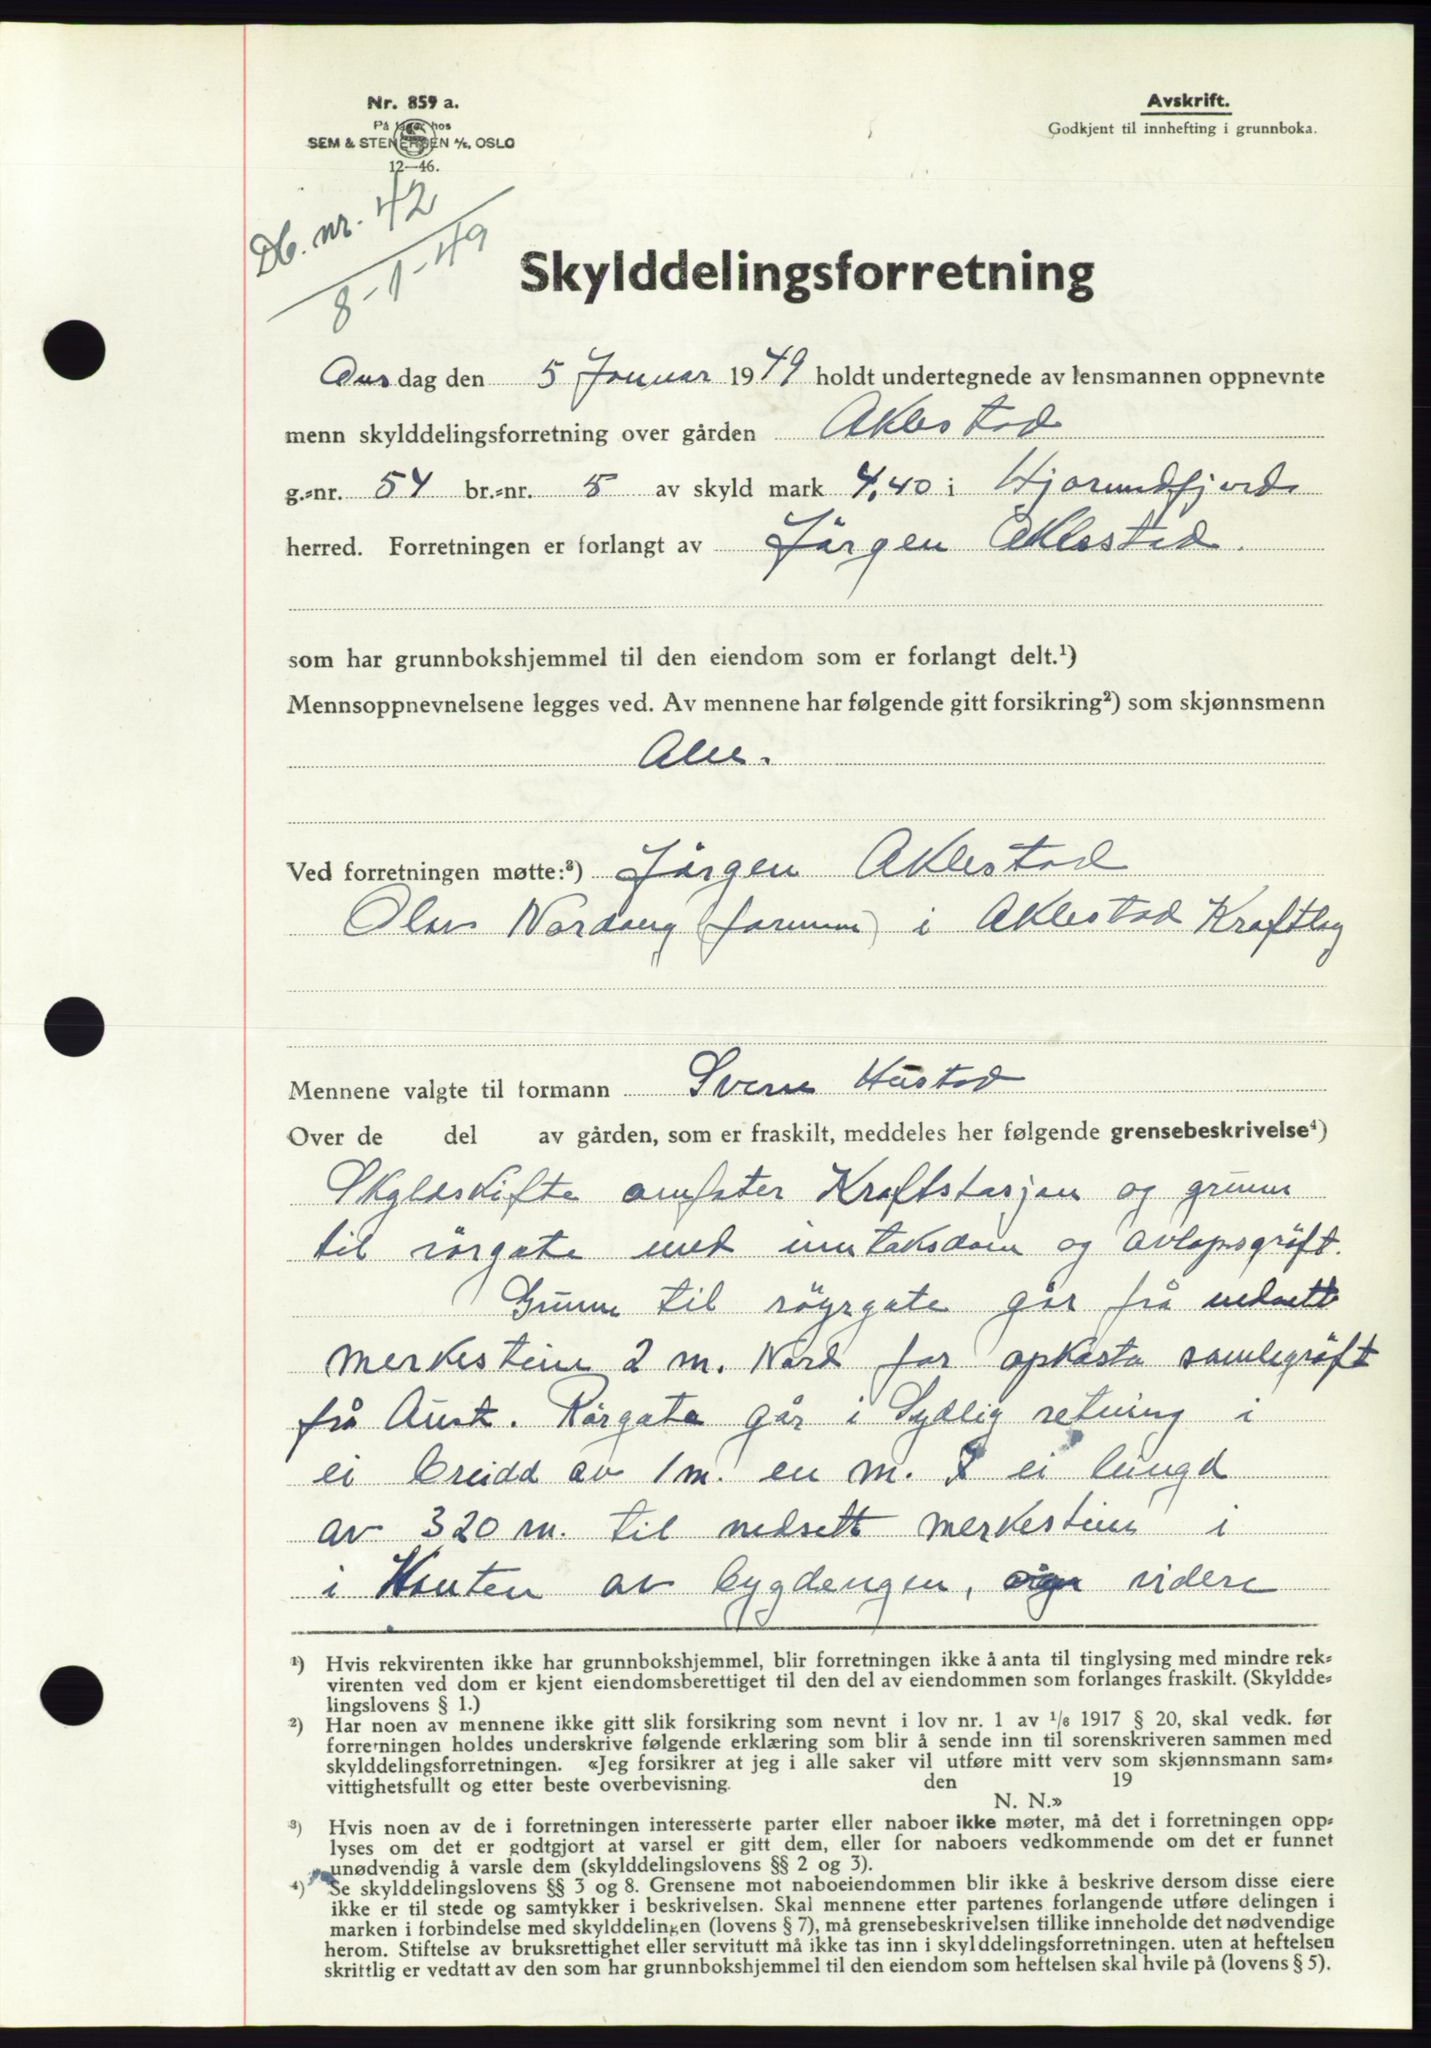 Nr. 859 a.
På lager hos
SEM & STENERSEN A/S, OSLO
12—46.
Avskrift.
Godkjent til innhefting i grunnboka.
Db. nr. 42
8-1-49
Skylddelingsforretning
Onsdag den 5 Januar 1949 holdt undertegnede av lensmannen oppnevnte
menn skylddelingsforretning over gården Aklestad
g.=nr. 54 br.=nr. 5 av skyld mark 4,40 i Hjørundfjord
herred. Forretningen er forlangt av Jørgen Aklestad.
som har grunnbokshjemmel til den eiendom som er forlangt delt.¹)
Mennsoppnevnelsene legges ved. Av mennene har følgende gitt forsikring²) som skjønnsmenn
Alle.
Ved forretningen møtte:³) Jørgen Aklestad
Olav Nordang (formann) i Aklestad Kraftlag
Mennene valgte til formann Sverre Hustad
Over de del av gården, som er fraskilt, meddeles her følgende grensebeskrivelse⁴)
Skyldskifte omfater Kraftstasjon og grunn
til rörgate med inntaksdam og avlopsgröft.
Grunn til röyrgate går frå nedsett
merkestein 2 m. Nord for opkasta samlegröft
frå Aust. Rörgata går i Sydlig retning i
ei breidd av 1 m. en m. I ei lengd
av 320 m. til nedsett merkestein i
i Kanten av bygdengen, videre
¹) Hvis rekvirenten ikke har grunnbokshjemmel, blir forretningen ikke å anta til tinglysing med mindre rek=
virenten ved dom er kjent eiendomsberettiget til den del av eiendommen som forlanges fraskilt. (Skyldde=
lingslovens § 1.)
²) Har noen av mennene ikke gitt slik forsikring som nevnt i lov nr. 1 av ¹/₈ 1917 § 20, skal vedk. før
forretningen holdes underskrive følgende erklæring som blir å sende inn til sorenskriveren sammen med
skylddelingsforretningen. «Jeg forsikrer at jeg i alle saker vil utføre mitt verv som skjønnsmann sam=
vittighetsfullt og etter beste overbevisning. den 19
N. N.»
³) Hvis noen av de i forretningen interesserte parter eller naboer ikke møter, må det i forretningen opp=
lyses om det er godtgjort at varsel er gitt dem, eller for naboers vedkommende om det er funnet
unødvendig å varsle dem (skylddelingslovens §§ 2 og 3).
⁴) Se skylddelingslovens §§ 3 og 8. Grensene mot naboeiendommen blir ikke å beskrive dersom disse eiere
ikke er til stede og samtykker i beskrivelsen. Skal mennene etter partenes forlangende utføre delingen i
marken i forbindelse med skylddelingen (lovens § 7), må grensebeskrivelsen tillike inneholde det nødvendige
herom. Stiftelse av bruksrettighet eller servitutt må ikke tas inn i skylddelingsforretningen. uten at heftelsen
skrittlig er vedtatt av den som har grunnbokshjemmel til den eiendom som heftelsen skal hvile på (lovens § 5).